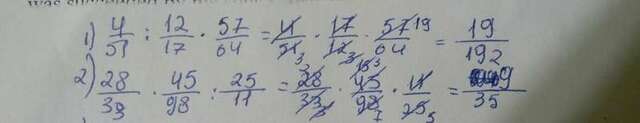 1) 4/51 : 12/17 · 57/64 = 4/51 3 · 17/12 3 · 57 19/64 = 19/192
2) 28/33 · 45/98 : 25/11 = 28/33 3 · 45/98 7 · 11/25 5 = 9/35